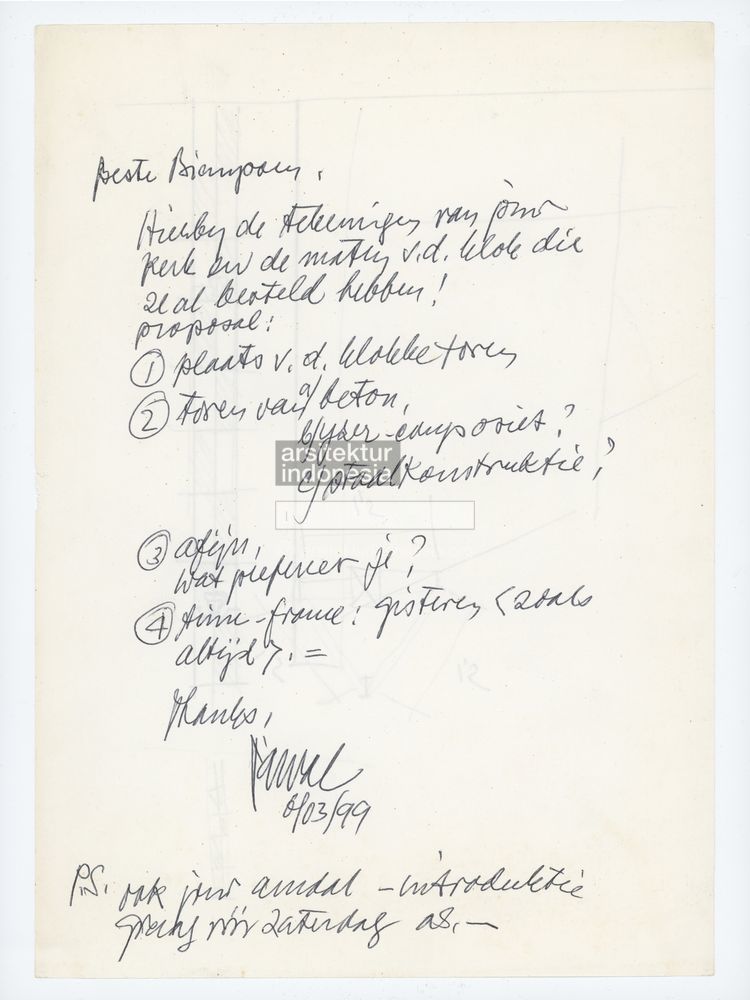 Beste Bianpoen,
Hierby de tekeningen van jouw
kerk en de maten v.d. klok die
ze al besteld hebben!
proposal:
① plaats v.d. klokketoren
② toren van a/ beton,
b/ yzer-composiet?
c/ staalkonstruktie?
arsitektur
indonesia
③ afijn,
wat prefereer je?
④ time-frame: gisteren <zoals
altijd>. =
thanks,
/03/99
P.S. ook jouw amdal - introduktie
graag vóór zaterdag as. —